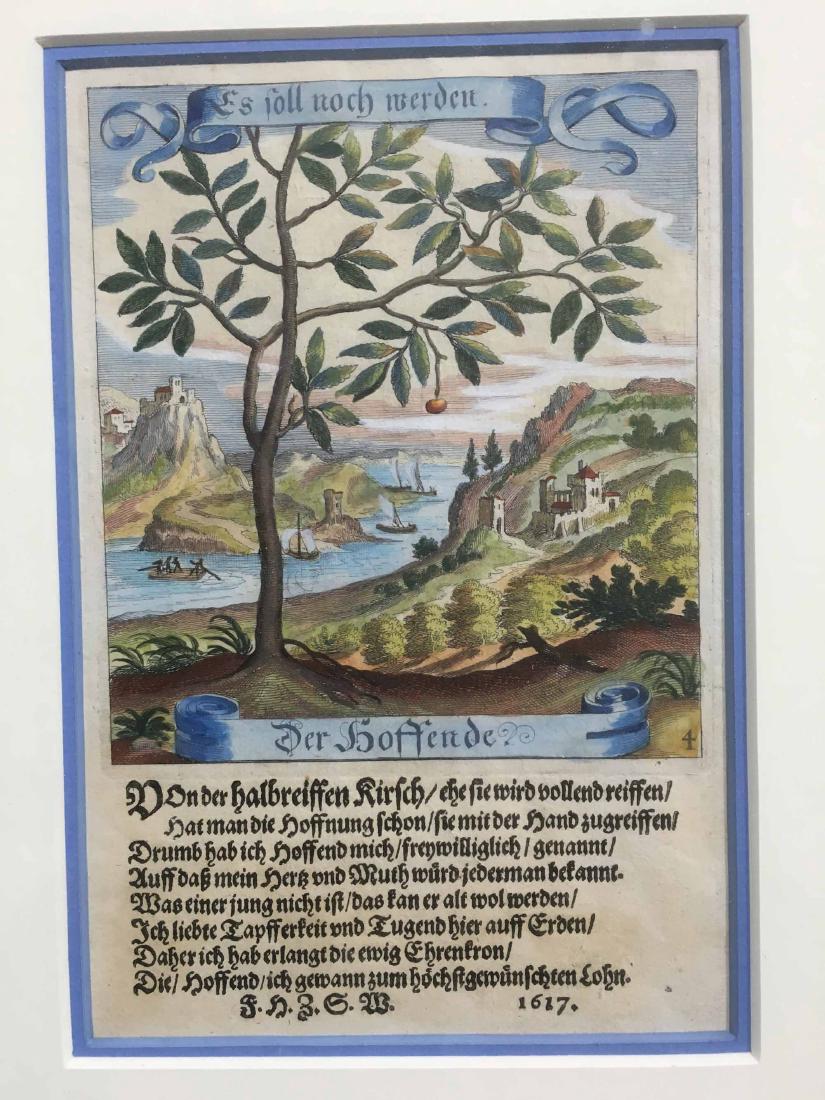 Es soll noch werden.
Der Hoffende.
4
VOn der halbreiffen Kirsch/ ehe sie wird vollend reiffen/
Hat man die Hoffnung schon/ sie mit der Hand zugreiffen/
Drumb hab ich Hoffend mich/ freywilliglich/ genannt/
Auff daß mein Hertz vnd Muth würd jederman bekannt.
Was einer jung nicht ist/ das kan er alt wol werden/
Ich liebte Tapfferkeit vnd Tugend hier auff Erden/
Daher ich hab erlangt die ewig Ehrenkron/
Die/ Hoffend/ ich gewann zum höchstgewünschten Lohn.
F. H. Z. S. W. 1617.